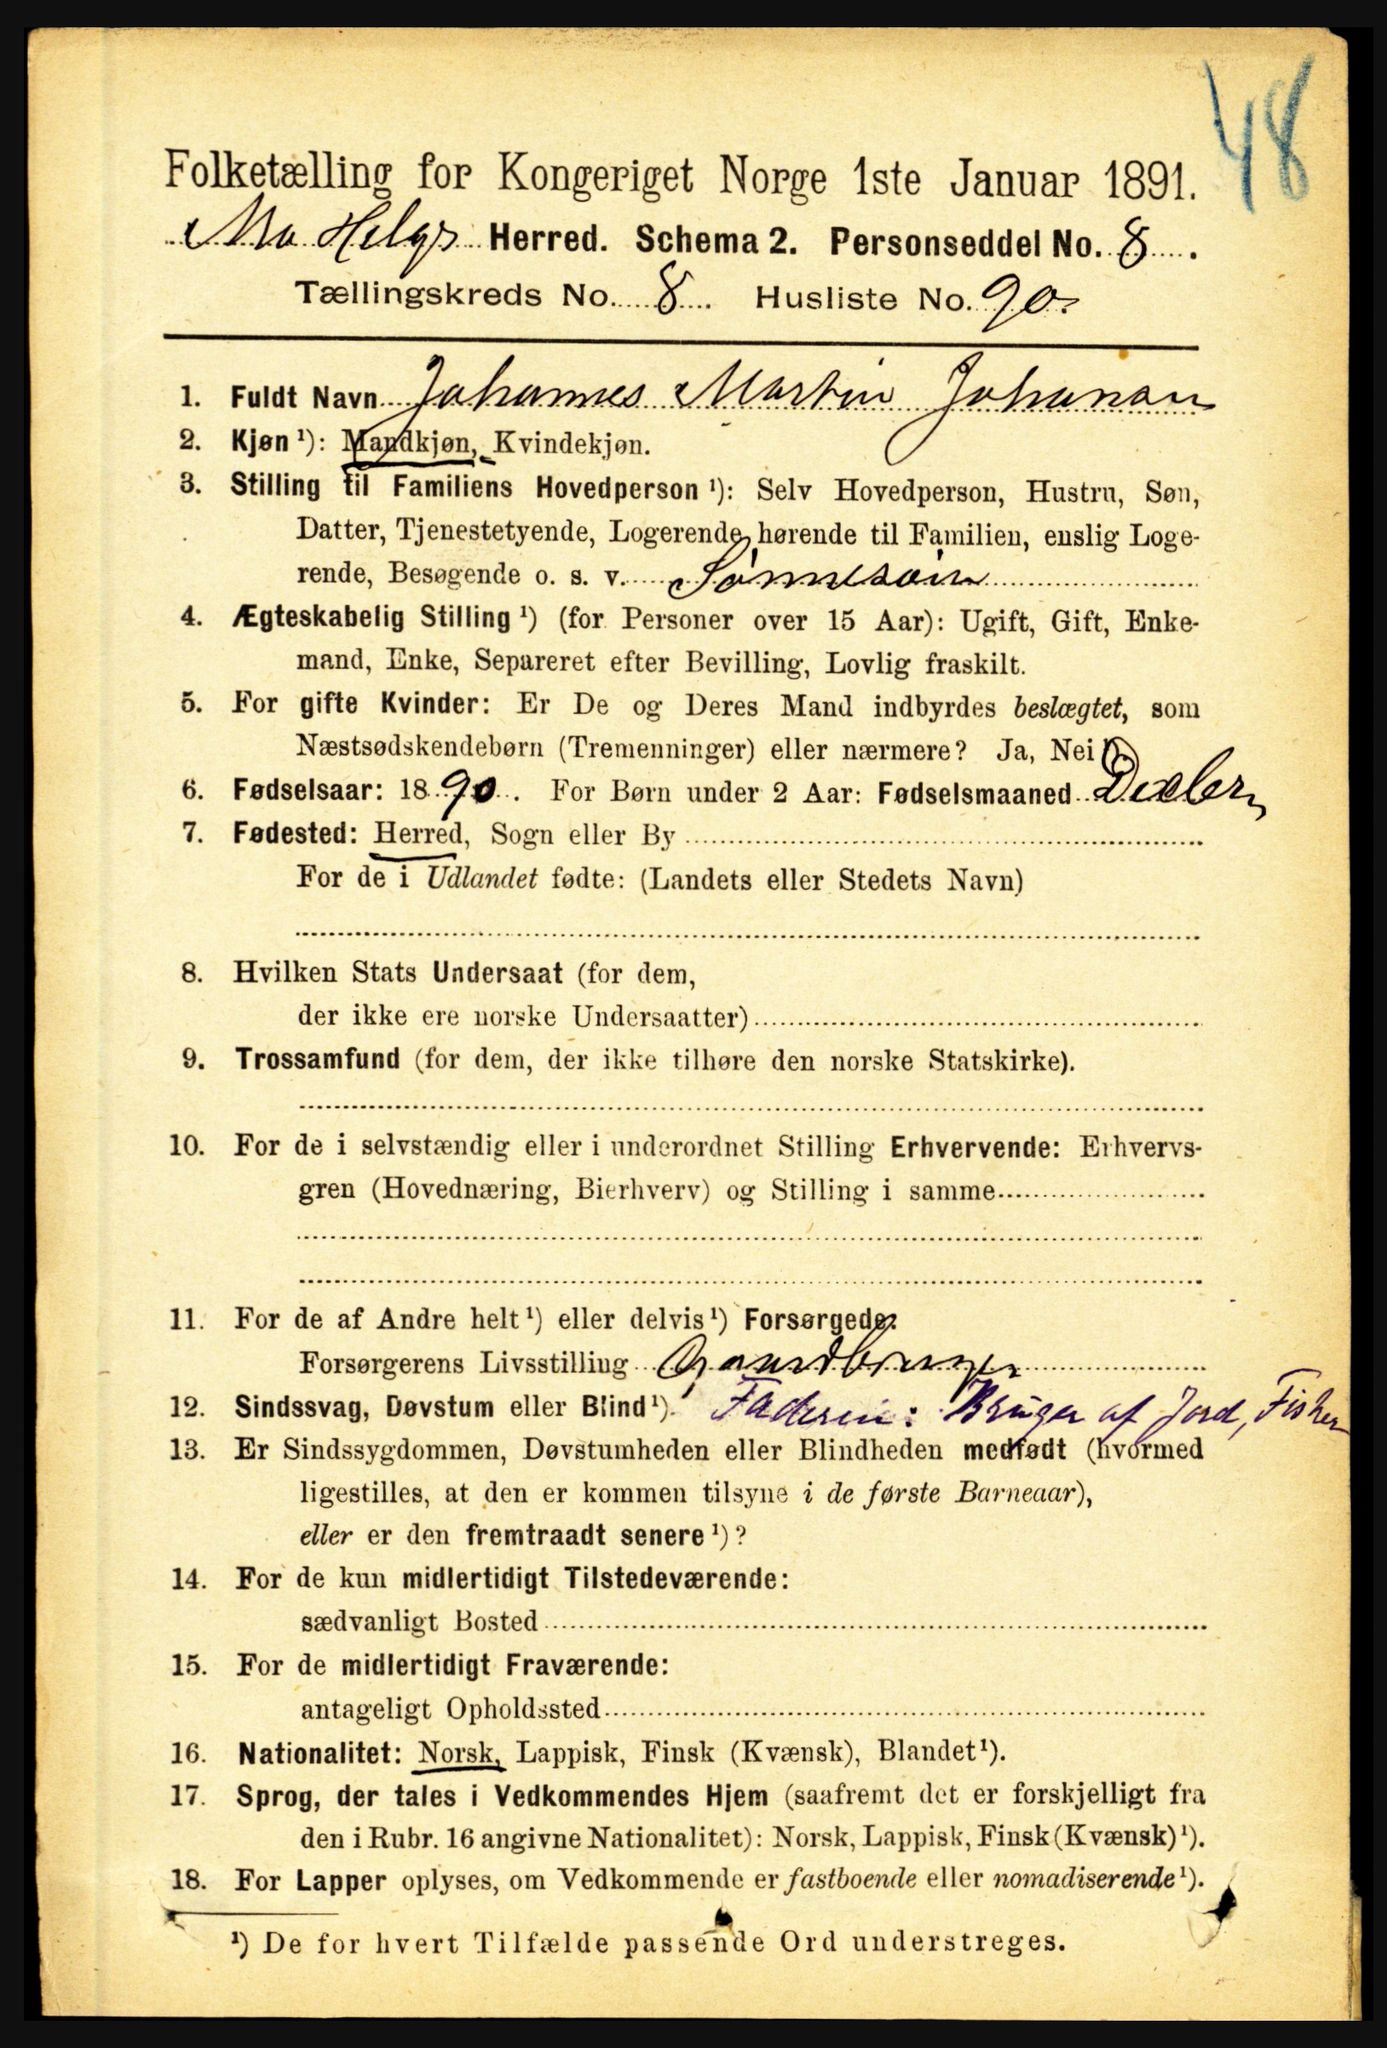 48
Folketælling for Kongeriget Norge 1ste Januar 1891.
Mo Helgs Herred. Schema 2. Personseddel No. 8.
Tællingskreds No. 8. Husliste No. 90.
1. Fuldt Navn Johannes Martin Johansen
2. Kjøn ¹): Mandkjøn, Kvindekjøn.
3. Stilling til Familiens Hovedperson ¹): Selv Hovedperson, Hustru, Søn,
Datter, Tjenestetyende, Logerende hørende til Familien, enslig Loge-
rende, Besøgende o. s. v. Sønnesøn
4. Ægteskabelig Stilling ¹) (for Personer over 15 Aar): Ugift, Gift, Enke-
mand, Enke, Separeret efter Bevilling, Lovlig fraskilt.
5. For gifte Kvinder: Er De og Deres Mand indbyrdes beslægtet, som
Næstsødskendebørn (Tremenninger) eller nærmere? Ja, Nei ¹).
6. Fødselsaar: 1890. For Børn under 2 Aar: Fødselsmaaned Decbr
7. Fødested: Herred, Sogn eller By
For de i Udlandet fødte: (Landets eller Stedets Navn)
8. Hvilken Stats Undersaat (for dem,
der ikke ere norske Undersaatter)
9. Trossamfund (for dem, der ikke tilhøre den norske Statskirke).
10. For de i selvstændig eller i underordnet Stilling Erhvervende: Erhvervs-
gren (Hovednæring, Bierhverv) og Stilling i samme
11. For de af Andre helt ¹) eller delvis ¹) Forsørgede:
Forsørgerens Livsstilling Gaardbruger
12. Sindssvag, Døvstum eller Blind ¹). Faderen: Bruger af Jord, Fisker
13. Er Sindssygdommen, Døvstumheden eller Blindheden medfødt (hvormed
ligestilles, at den er kommen tilsyne i de første Barneaar),
eller er den fremtraadt senere ¹)?
14. For de kun midlertidigt Tilstedeværende:
sædvanligt Bosted
15. For de midlertidigt Fraværende:
antageligt Opholdssted
16. Nationalitet: Norsk, Lappisk, Finsk (Kvænsk), Blandet ¹).
17. Sprog, der tales i Vedkommendes Hjem (saafremt det er forskjelligt fra
den i Rubr. 16 angivne Nationalitet): Norsk, Lappisk, Finsk (Kvænsk) ¹).
18. For Lapper oplyses, om Vedkommende er fastboende eller nomadiserende ¹).
¹) De for hvert Tilfælde passende Ord understreges.